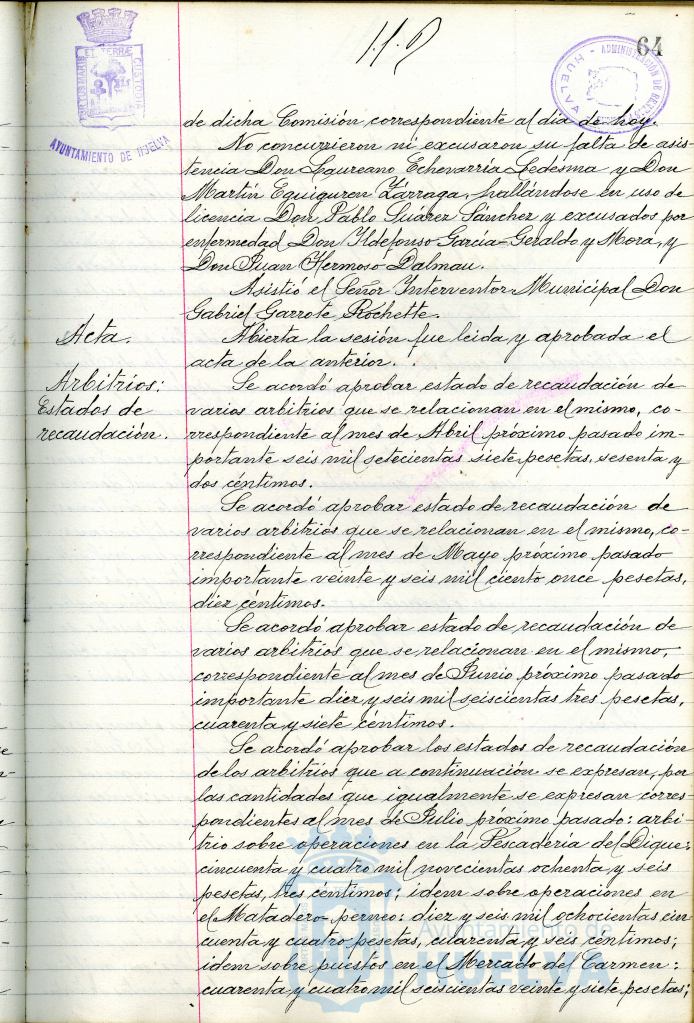 64
PORTUS MARIS ET TERRAE CUSTODIA
AYUNTAMIENTO DE HUELVA
ADMINISTRACIÓN DE
HUELVA
de dicha Comisión correspondiente al día de hoy.
No concurrieron ni excusaron su falta de asis-
tencia Don Laureano Echevarría Ledesma y Don
Martín Eguiguren Zárraga, hallándose en uso de
licencia Don Pablo Suárez Sánchez y excusados por
enfermedad Don Ildefonso García-Geraldo y Mora, y
Don Juan Hermoso Dalmau.
Asistió el Señor Interventor Municipal Don
Gabriel Garrote Rochette.
Acta.
Abierta la sesión fue leida y aprobada el
acta de la anterior.
Arbitrios:
Estados de
recaudación.
Se acordó aprobar estado de recaudación de
varios arbitrios que se relacionan en el mismo, co-
rrespondiente al mes de Abril próximo pasado im-
portante seis mil setecientas siete pesetas, sesenta y
dos céntimos.
Se acordó aprobar estado de recaudación de
varios arbitrios que se relacionan en el mismo, co-
rrespondiente al mes de Mayo próximo pasado
importante veinte y seis mil ciento once pesetas,
diez céntimos.
Se acordó aprobar estado de recaudación de
varios arbitrios que se relacionan en el mismo,
correspondiente al mes de Junio próximo pasado
importante diez y seis mil seiscientas tres pesetas,
cuarenta y siete céntimos.
Se acordó aprobar los estados de recaudación
de los arbitrios que a continuación se expresan, por
las cantidades que igualmente se expresan corres-
pondientes al mes de Julio próximo pasado: arbi-
trio sobre operaciones en la Pescadería del Dique:
cincuenta y cuatro mil novecientas ochenta y seis
pesetas, tres céntimos; idem sobre operaciones en
el Matadero perneo: diez y seis mil ochocientas cin
cuenta y cuatro pesetas, cuarenta y seis céntimos;
idem sobre puestos en el Mercado del Carmen:
cuarenta y cuatro mil seiscientas veinte y siete pesetas;
Ayuntamiento de
HUELVA